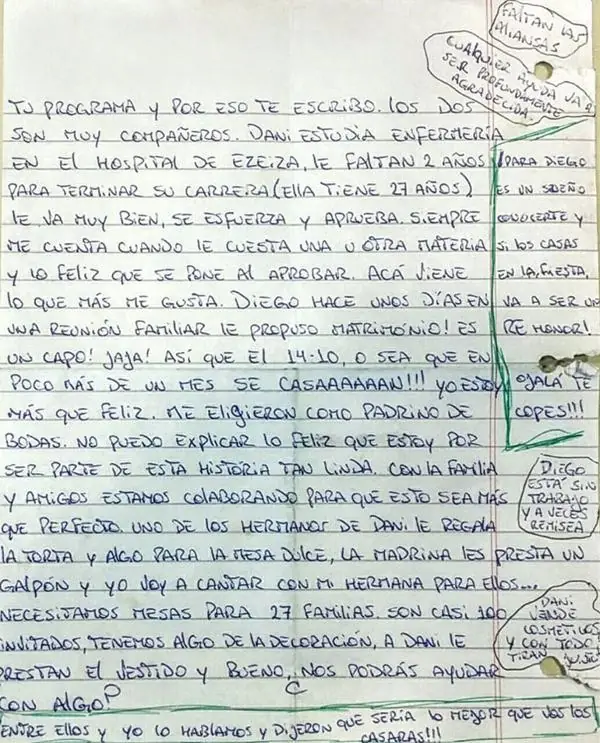 FALTAN LAS
ALIANSAS
CUALQUIER AYUDA VA A
SER PROFUNDAMENTE
AGRADECIDA.
TU PROGRAMA Y POR ESO TE ESCRIBO. LOS DOS
SON MUY COMPAÑEROS. DANI ESTUDIA ENFERMERÍA
EN El HOSPITAL DE EZEIZA, lE FALTAN 2 AÑOS
PARA TERMINAR SU CARRERA (EllA TIENE 27 AÑOS)
lE VA MUY BIEN, SE ESFUERZA Y APRUEBA. SIEMPRE
ME CUENTA CUANDO lE CUESTA UNA U OTRA MATERIA
Y lO FElIZ QUE SE PONE Al APROBAR. ACÁ VIENE
lO QUE MÁS ME GUSTA. DIEGO HACE UNOS DÍAS EN
UNA REUNIÓN FAMILIAR lE PROPUSO MATRIMONIO! ES
UN CAPO! JAJA! ASÍ QUE El 14-10, O SEA QUE EN
POCO MÁS DE UN MES SE CASAAAAAAN!!! YO ESTOY
MÁS QUE FElIZ. ME ElIGIERON COMO PADRINO DE
BODAS. NO PUEDO EXPlICAR lO FElIZ QUE ESTOY POR
SER PARTE DE ESTA HISTORIA TAN lINDA. CON lA FAMIlIA
Y AMIGOS ESTAMOS COlABORANDO PARA QUE ESTO SEA MÁS
QUE PERFECTO. UNO DE lOS HERMANOS DE DANI lE REGAlA
lA TORTA Y AlGO PARA lA MESA DUlCE, lA MADRINA lES PRESTA UN
GAlPÓN Y YO VOY A CANTAR CON MI HERMANA PARA EllOS...
NECESITAMOS MESAS PARA 27 FAMIlIAS. SON CASI 100
INVITADOS, TENEMOS AlGO DE lA DECORACIÓN, A DANI lE
PRESTAN El VESTIDO Y BUENO, NOS PODRÁS AYUDAR
CON AlGO?
PARA DIEGO
ES UN SUEÑO
CONOCERTE Y
SI lOS CASAS
EN lA FIESTA,
VA A SER UN
RE HONOR!
OJALÁ TE
COPES!!!
DIEGO
ESTÁ SIN
TRABAJO
Y A VECES
REMISEA
DANI
VENDE
COSMÉTICOS
Y CON TODO
TIRAN
ENTRE EllOS Y YO lO HABlAMOS Y DIJERON QUE SERÍA lO MEJOR QUE VOS lOS
CASARAS!!!